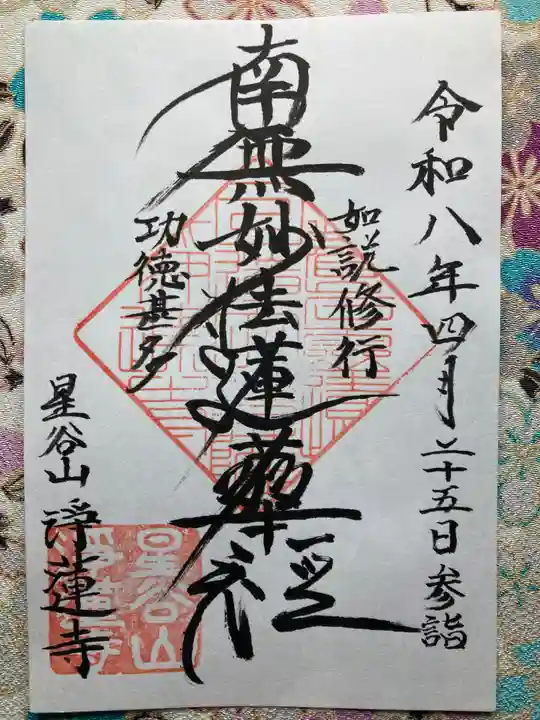 令和八年四月二十五日参詣
如説修行
南無妙法蓮華経
功徳甚多
星谷山 浄蓮寺
星谷山
浄蓮寺